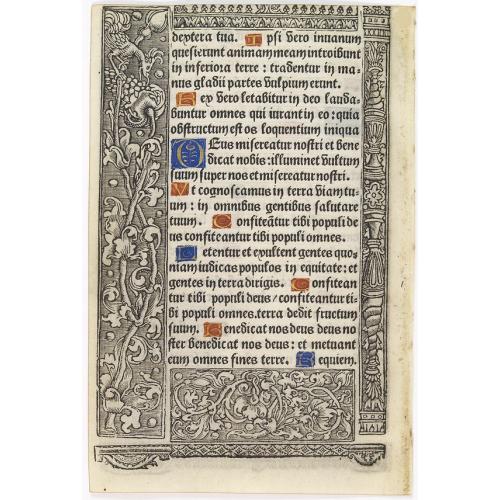 dextera tua. Ipsi vero in vanum
quesierunt animam meam introibunt
in inferiora terre : tradentur in ma-
nus gladii partes vulpium erunt.
Rex vero letabitur in deo lauda-
buntur omnes qui iurant in eo : quia
obstructum est os loquentium iniqua
Deus misereatur nostri et bene
dicat nobis : illuminet vultum
suum super nos et misereatur nostri.
Ut cognoscamus in terra viam tu-
um : in omnibus gentibus salutare
tuum. Confiteãtur tibi populi de
us confiteantur tibi populi omnes.
Letentur et exultent gentes quo-
niam iudicas populos in equitate : et
gentes in terra dirigis. Confitean
tur tibi populi deus / confiteantur ti-
bi populi omnes. terra dedit fructum
suum. Benedicat nos deus deus no
ster benedicat nos deus : et metuant
eum omnes fines terre. Requiem.